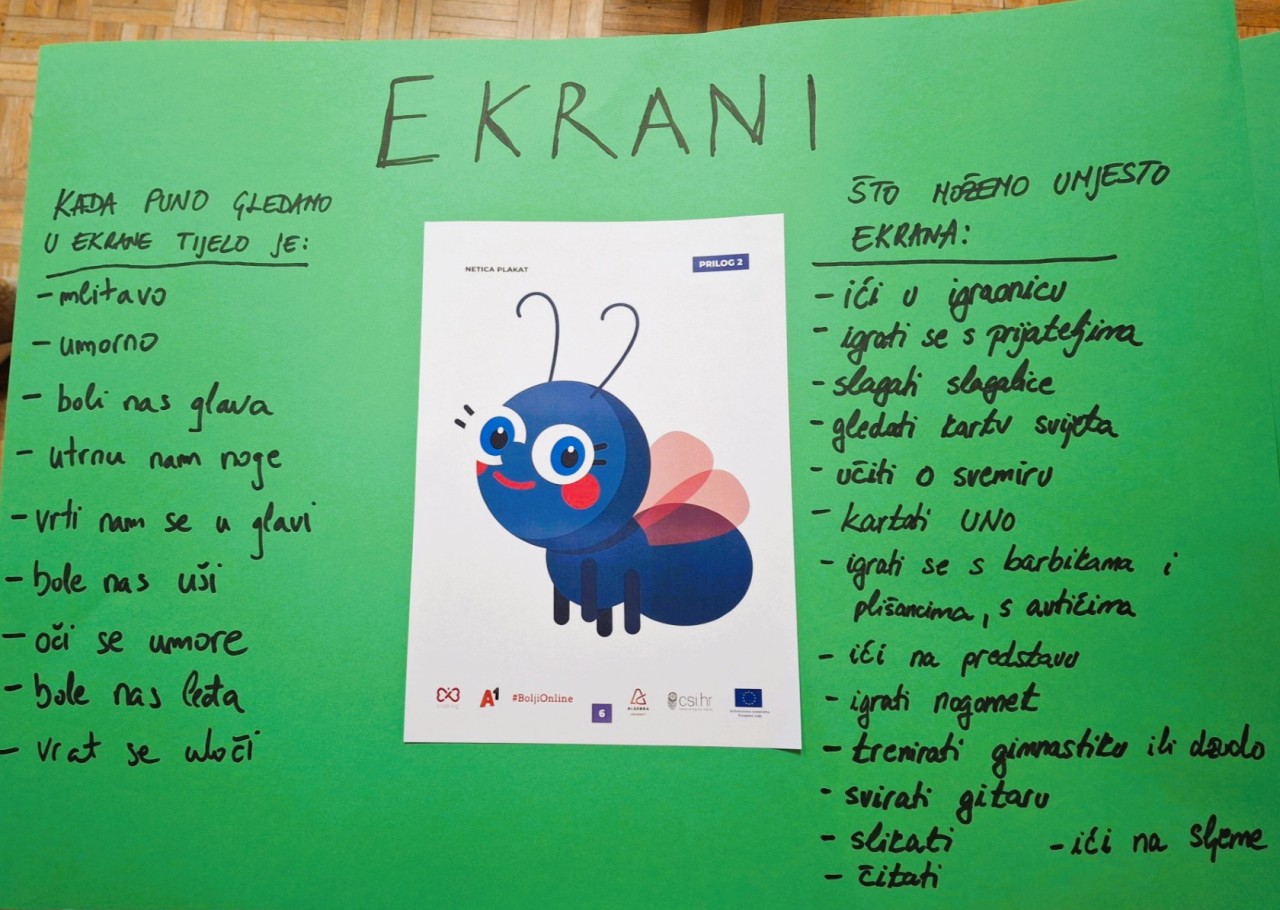 EKRANI
KADA PUNO GLEDAMO
U EKRANE TIJELO JE:
- mlitavo
- umorno
- boli nas glava
- utrnu nam noge
- vrti nam se u glavi
- bole nas uši
- oči se umore
- bole nas leđa
- vrat se ukoči
NETICA PLAKAT
PRILOG 2
A1
#BoljiOnline
6
ALGEBRA
csi hr
ŠTO MOŽEMO UMJESTO
EKRANA:
- ići u igraonicu
- igrati se s prijateljima
- slagati slagalice
- gledati kartu svijeta
- učiti o svemiru
- kartati UNO
- igrati se s barbikama i
plišancima, s autićima
- ići na predstavu
- igrati nogomet
- trenirati gimnastiku ili džudo
- svirati gitaru
- slikati
- ići na sljeme
- čitati